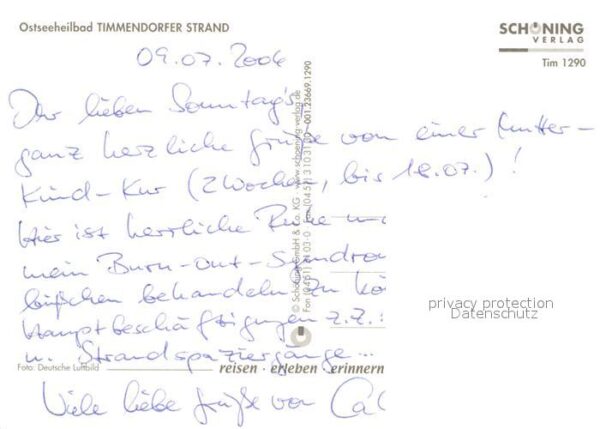 Ostseeheilbad TIMMENDORFER STRAND
SCHÖNING
VERLAG
Tim 1290
09.07.2006
Ihr lieben Sonntag's,
ganz herzliche Grüße von einer Mutter-
Kind-Kur (2 Wochen, bis 18.07.)!
Hier ist herrliche Ruhe
mein Burn-out-Syndro
bißchen behandeln zu kö
Hauptbeschäftigungen z.Z.:
u. Strandspaziergänge...
Viele liebe Grüße von
© Schöning GmbH & Co. KG · www.schoening-verlag.de
001.23669.1290
privacy protection
Datenschutz
Foto: Deutsche Luftbild
reisen · erleben · erinnern